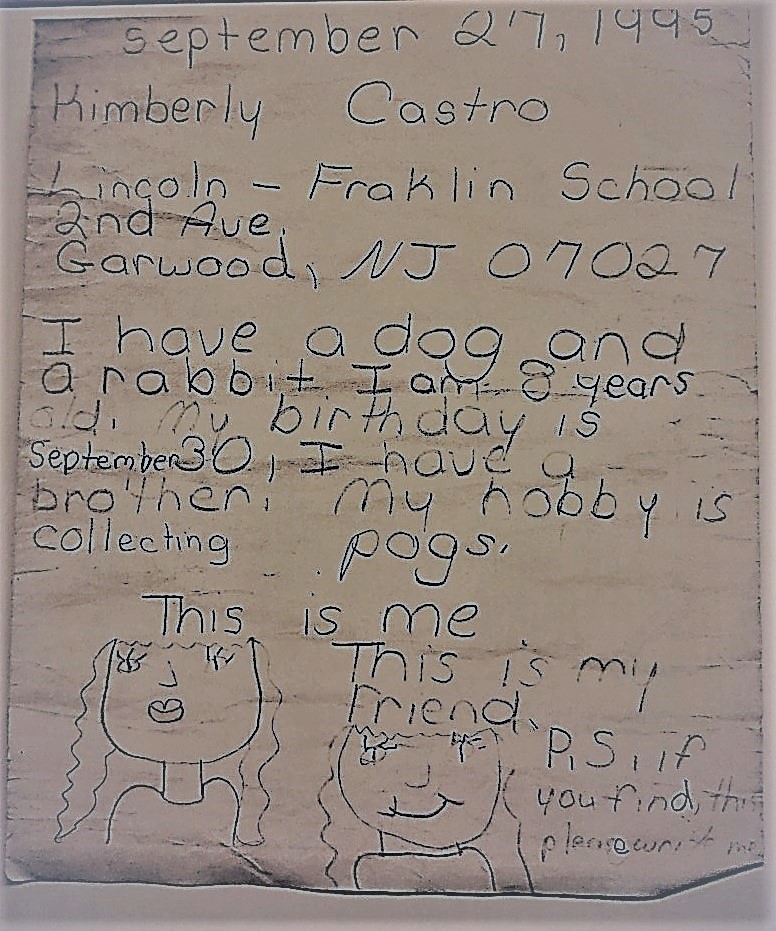 september 27, 1995
Kimberly Castro
Lincoln - Fraklin School
2nd Ave.
Garwood, NJ 07027
I have a dog and
a rabbit I am 8 years
old. My birthday is
September 30, I have a
brother. My hobby is
collecting pogs.
This is me
This is my
friend.
P.S, if
you find, this
please writ me